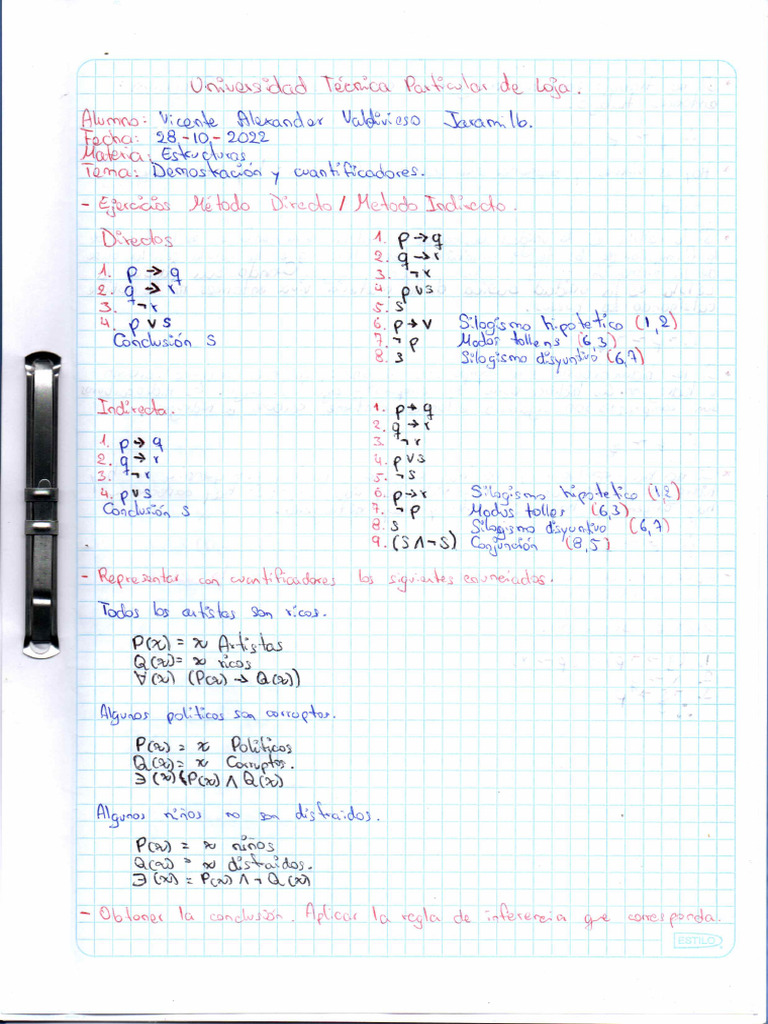 Universidad Técnica Particular de Loja.
Alumno: Vicente Alexander Valdivieso Jaramillo.
Fecha: 28-10-2022
Materia: Estructuras
Tema: Demostración y cuantificadores.
- Ejercicios Método Directo / Metodo Indirecto.
Directos
1. p → q
2. q → r
3. ¬r
4. p ∨ s
Conclusión S
1. p → q
2. q → r
3. ¬r
4. p ∨ s
5. s
6. p → r Silogismo hipotetico (1,2)
7. ¬p Modus tollens (6,3)
8. s Silogismo disyuntivo (6,7)
Indirecta.
1. p → q
2. q → r
3. ¬r
4. p ∨ s
Conclusión s
1. p → q
2. q → r
3. ¬r
4. p ∨ s
5. ¬s
6. p → r Silogismo hipotetico (1,2)
7. ¬p Modus tolles (6,3)
8. s Silogismo disyuntivo (6,7)
9. (S ∧ ¬S) Conjunción (8,5)
- Representar con cuantificadores los siguientes enunciados.
Todos los artistas son ricos.
P(x) = x Artistas
Q(x) = x ricos
∀(x) (P(x) → Q(x))
Algunos políticos son corruptos.
P(x) = x Políticos
Q(x) = x Corruptos.
∃(x) (P(x) ∧ Q(x)
Algunos niños no son distraidos.
P(x) = x niños
Q(x) = x distraidos.
∃(x) = P(x) ∧ ¬Q(x)
- Obtener la conclusión. Aplicar la regla de inferencia que corresponda.
ESTILO